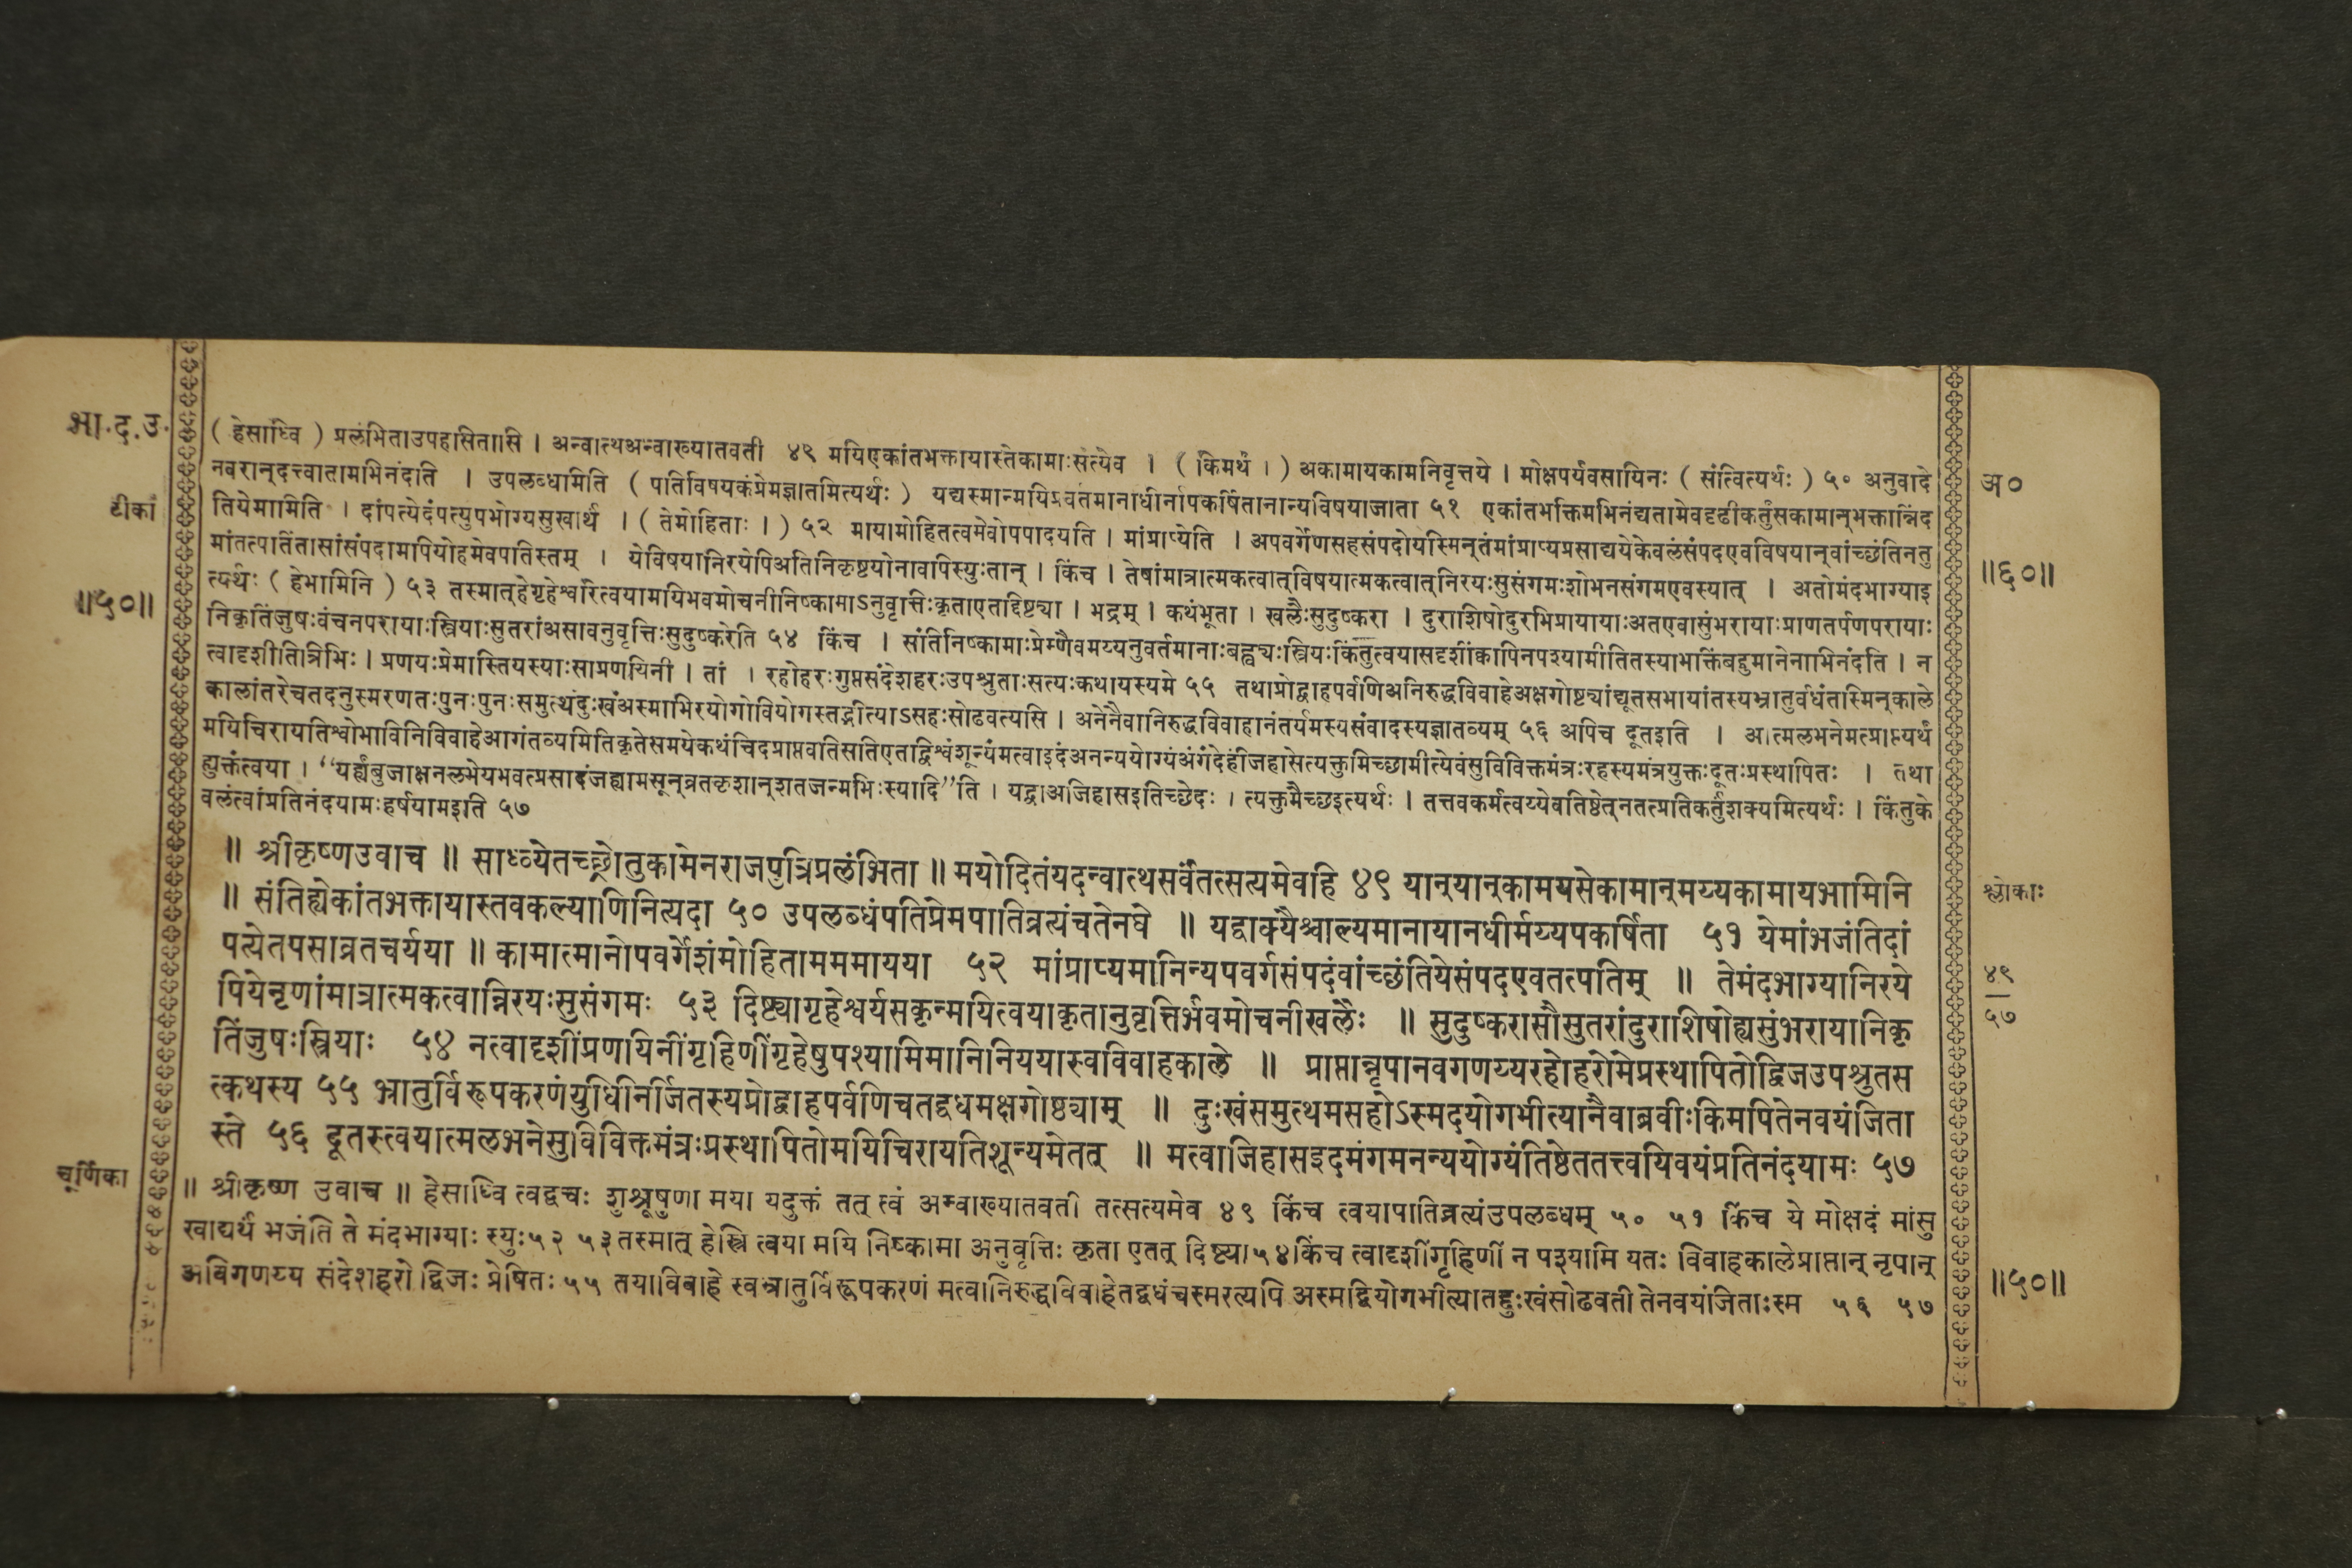 भा.द.उ.
( हेसाध्वि ) प्रलंभिताउपहासितासि । अन्वात्थअन्वाख्यातवती ४९ मयिएकांतभक्तायास्तेकामाःसंत्येव । ( किमर्थं । ) अकामायकामनिवृत्तये । मोक्षपर्यवसायिनः ( संत्वित्यर्थः ) ५० अनुवादे
नवरान्दत्त्वातामभिनंदति । उपलब्धामिति ( पतिविषयकंप्रेमज्ञातमित्यर्थः ) यद्यस्मान्मयिप्रवर्तमानाधीर्नापकर्षितानान्यविषयाजाता ५१ एकांतभक्तिमभिनंद्यतामेवदृढीकर्तुंसकामान्भक्तान्निंद
टीका
तियेमामिति । दांपत्येदंपत्युपभोग्यसुखार्थं । ( तेमोहिताः । ) ५२ मायामोहितत्वमेवोपपादयति । मांप्राप्येति । अपवर्गेणसहसंपदोयस्मिन्तंमांप्राप्यप्रसाद्ययेकेवलंसंपदएवविषयान्वांच्छंतिनतु
मांतत्पतिंतासांसंपदामपियोहमेवपतिस्तम् । येविषयानिरयेपिअतिनिकृष्टयोनावापिस्युःतान् । किंच । तेषांमात्रात्मकत्वात्विषयात्मकत्वात्निरयःसुसंगमःशोभनसंगमएवस्यात् । अतोमंदभाग्याइ
त्यर्थः ( हेभामिनि ) ५३ तस्मात्हेगृहेश्वरित्वयामयिभवमोचनीनिष्कामाऽनुवृत्तिःकृताएतद्दिष्ट्या । भद्रम् । कथंभूता । खलैःसुदुष्करा । दुराशिषोदुरभिप्रायायाःअतएवासुंभरायाःप्राणतर्पणपरायाः
निकृतिंजुषःवंचनपरायाःस्त्रियाःसुतरांअसावनुवृत्तिःसुदुष्करेति ५४ किंच । संतिनिष्कामाःप्रेम्णैवमय्यनुवर्तमानाःबह्व्यःस्त्रियःकिंतुत्वयासदृशींकापिनपश्यामीतितस्याभक्तिंबहुमानेनाभिनंदति । न
त्वादृशीतित्रिभिः । प्रणयःप्रेमास्तियस्याःसाप्रणयिनी । तां । रहोहरःगुप्तसंदेशहरःउपश्रुताःसत्यःकथायस्यमे ५५ तथाप्रोद्वाहपर्वणिअनिरुद्धविवाहेअक्षगोष्ट्यांद्यूतसभायांतस्यभ्रातुर्वधंतस्मिन्काले
कालांतरेचतदनुस्मरणतःपुनःपुनःसमुत्थंदुःखंअस्माभिरयोगोवियोगस्तद्भीत्याऽसहःसोढवत्यसि । अनेनैवानिरुद्धविवाहानंतर्यमस्यसंवादस्यज्ञातव्यम् ५६ अपिच दूतइति । आत्मलभनेमत्प्राप्त्यर्थं
मयिचिरायतिश्वोभाविनिविवाहेआगंतव्यमितिकृतेसमयेकथंचिदप्राप्तवतिसतिएतद्विश्वंशून्यंमत्वाइदंअनन्ययोग्यंअंगंदेहंजिहासेत्यक्तुमिच्छामीत्येवंसुविविक्तमंत्रःरहस्यमंत्रयुक्तःदूतःप्रस्थापितः । तथा
ह्युक्तंत्वया । “यर्ह्यंबुजाक्षनलभेयभवत्प्रसादंजह्यामसून्व्रतकृशान्शतजन्मभिःस्यादि”ति । यद्वाअजिहासइतिच्छेदः । त्यक्तुमैच्छइत्यर्थः । तत्तवकर्मत्वय्येवतिष्ठेत्नतत्प्रतिकर्तुंशक्यमित्यर्थः । किंतुके
वलंत्वांप्रतिनंदयामःहर्षयामइति ५७
॥५०॥
अ०
॥६०॥
॥ श्रीकृष्णउवाच ॥ साध्व्येतच्छ्रोतुकामेनराजपुत्रिप्रलंभिता ॥ मयोदितंयदन्वात्थसर्वंतत्सत्यमेवहि ४९ यान्यान्कामयसेकामान्मय्यकामायभामिनि
॥ संतिह्येकांतभक्तायास्तवकल्याणिनित्यदा ५० उपलब्धंपतिप्रेमपातिव्रत्यंचतेनघे ॥ यद्वाक्यैश्चाल्यमानायानधीर्मय्यपकर्षिता ५१ येमांभजंतिदां
पत्येतपसाव्रतचर्यया ॥ कामात्मानोपवर्गेशंमोहितामममायया ५२ मांप्राप्यमानिन्यपवर्गसंपदंवांच्छंतियेसंपदएवतत्पतिम् ॥ तेमंदभाग्यानिरये
पियेनृणांमात्रात्मकत्वान्निरयःसुसंगमः ५३ दिष्ट्यागृहेश्वर्यसकृन्मयित्वयाकृतानुवृत्तिर्भवमोचनीखलैः ॥ सुदुष्करासौसुतरांदुराशिषोह्यसुंभरायानिकृ
तिंजुषःस्त्रियाः ५४ नत्वादृशींप्रणयिनींगृहिणींगृहेषुपश्यामिमानिनिययास्वविवाहकाले ॥ प्राप्तान्नृपानवगणय्यरहोहरोमेप्रस्थापितोद्विजउपश्रुतस
त्कथस्य ५५ भ्रातुर्विरूपकरणंयुधिनिर्जितस्यप्रोद्वाहपर्वणिचतद्वधमक्षगोष्ठ्याम् ॥ दुःखंसमुत्थमसहोऽस्मदयोगभीत्यानैवाब्रवीःकिमपितेनवयंजिता
स्ते ५६ दूतस्त्वयात्मलभनेसुविविक्तमंत्रःप्रस्थापितोमयिचिरायतिशून्यमेतत् ॥ मत्वाजिहासइदमंगमनन्ययोग्यंतिष्ठेततत्त्वयिवयंप्रतिनंदयामः ५७
श्लोकाः
४९
५७
चूर्णिका
॥ श्रीकृष्ण उवाच ॥ हेसाध्वि त्वद्वचः शुश्रूषुणा मया यदुक्तं तत् त्वं अन्वाख्यातवती तत्सत्यमेव ४९ किंच त्वयापातिव्रत्यंउपलब्धम् ५० ५१ किंच ये मोक्षदं मांसु
खाद्यर्थं भजंति ते मंदभाग्याः स्युः५२ ५३तस्मात् हेस्त्रि त्वया मयि निष्कामा अनुवृत्तिः कृता एतत् दिष्ट्या५४किंच त्वादृशींगृहिणीं न पश्यामि यतः विवाहकालेप्राप्तान् नृपान्
अविगणय्य संदेशहरो द्विजः प्रेषितः ५५ तयाविवाहे स्वभ्रातुर्विरूपकरणं मत्वानिरुद्धविवाहेतद्वधंचस्मरत्यपि अस्मद्वियोगभीत्यातद्दुःखंसोढवती तेनवयंजिताःस्म ५६ ५७
॥५०॥